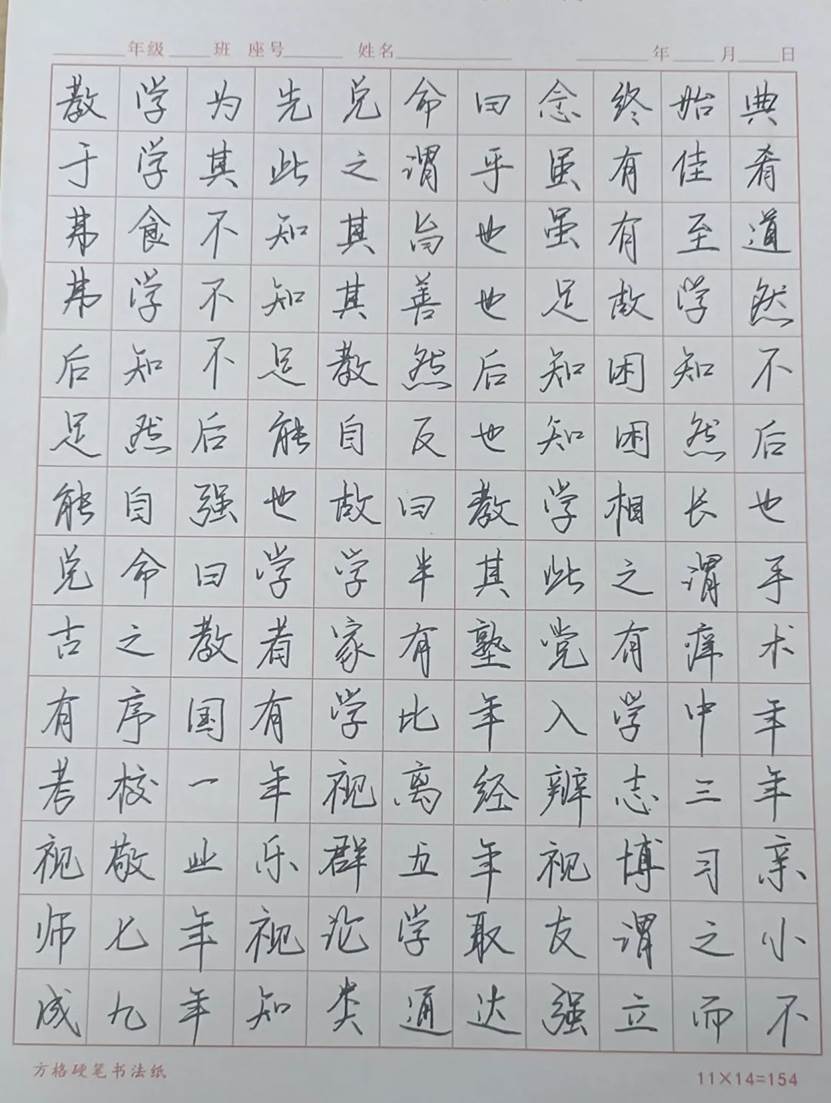 年级 班 座号 姓名 年 月 日
教学为先兑命曰念终始典
于学其此之谓乎虽有佳肴
弗食不知其旨也虽有至道
弗学不知其善也足故学然
后知不足教然后知困知不
足然后能自反也知困然后
能自强也故曰教学相长也
兑命曰学学半其此之谓乎
古之教者家有塾党有庠术
有序国有学比年入学中年
考校一年视离经辨志三年
视敬业乐群五年视博习亲
师七年视论学取友谓之小
成九年知类通达强立而不
方格硬笔书法纸 11×14=154